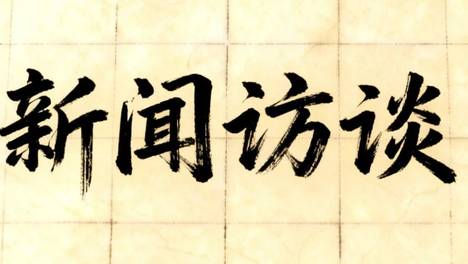 新闻访谈